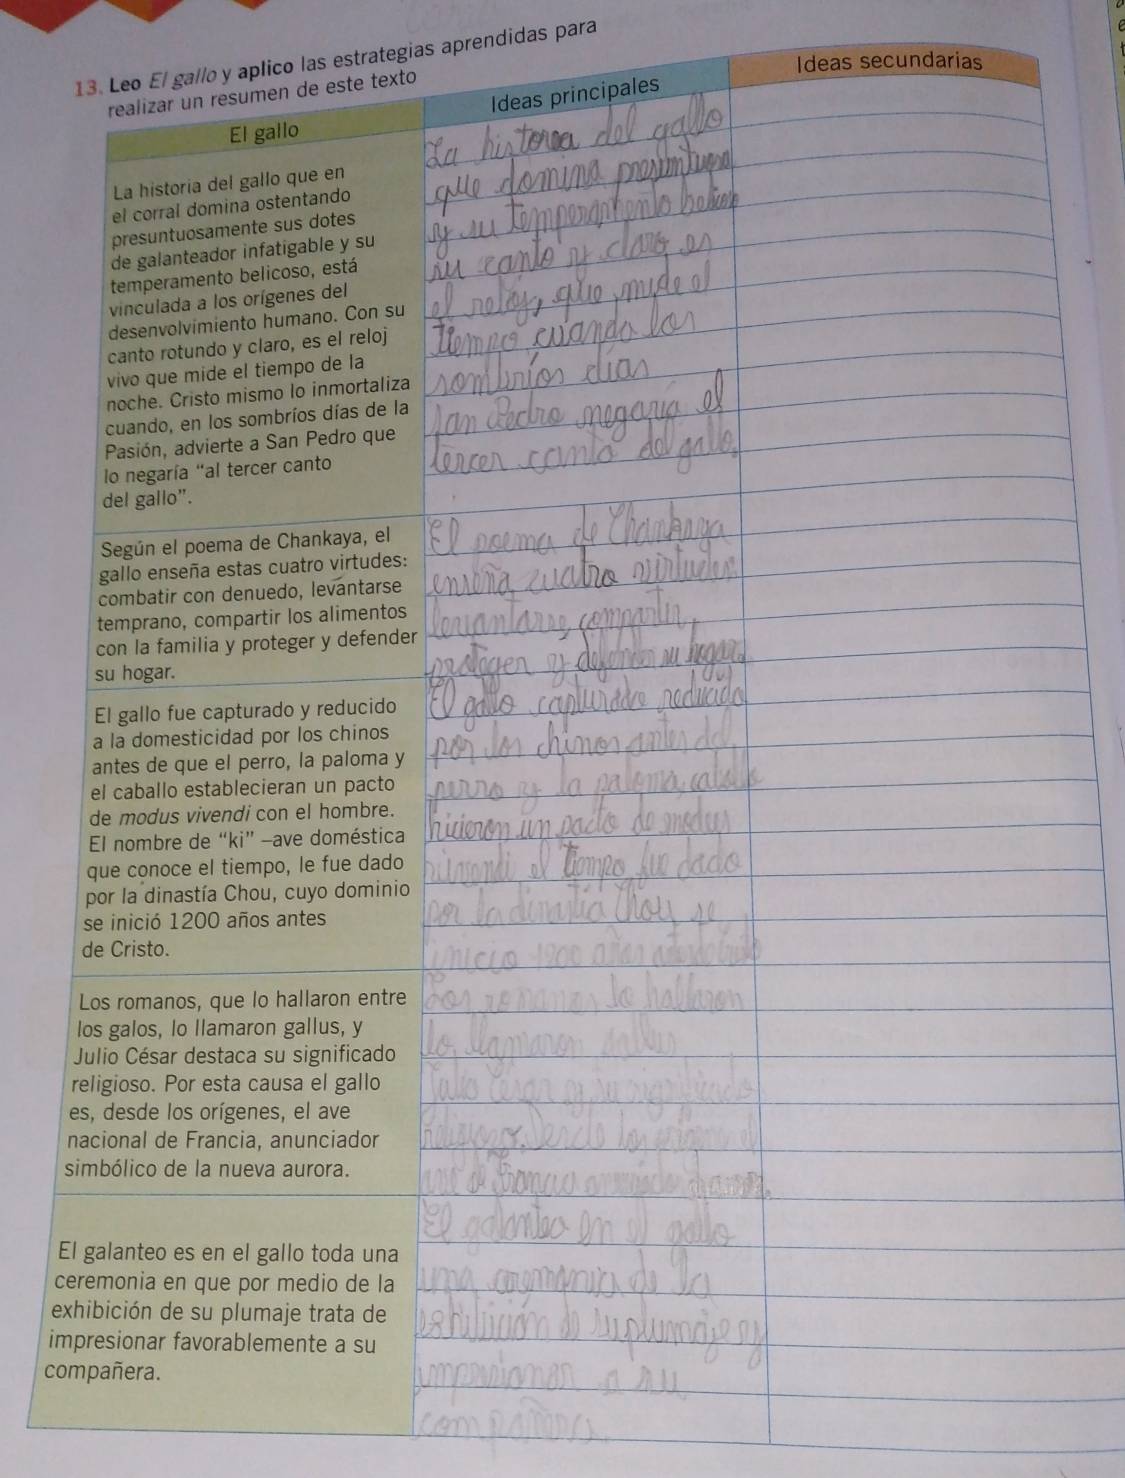 13. Leo El gallo y aplico las estrategias aprendidas para
realizar un resumen de este texto
El gallo
La historia del gallo que en
el corral domina ostentando
presuntuosamente sus dotes
de galanteador infatigable y su
temperamento belicoso, está
vinculada a los orígenes del
desenvolvimiento humano. Con su
canto rotundo y claro, es el reloj
vivo que mide el tiempo de la
noche. Cristo mismo lo inmortaliza
cuando, en los sombríos días de la
Pasión, advierte a San Pedro que
lo negaría “al tercer canto
del gallo”.
Según el poema de Chankaya, el
gallo enseña estas cuatro virtudes:
combatir con denuedo, levantarse
temprano, compartir los alimentos
con la familia y proteger y defender
su hogar.
El gallo fue capturado y reducido
a la domesticidad por los chinos
antes de que el perro, la paloma y
el caballo establecieran un pacto
de modus vivendi con el hombre.
El nombre de “ki” –ave doméstica
que conoce el tiempo, le fue dado
por la dinastía Chou, cuyo dominio
se inició 1200 años antes
de Cristo.
Los romanos, que lo hallaron entre
los galos, lo llamaron gallus, y
Julio César destaca su significado
religioso. Por esta causa el gallo
es, desde los orígenes, el ave
nacional de Francia, anunciador
simbólico de la nueva aurora.
El galanteo es en el gallo toda una
ceremonia en que por medio de la
exhibición de su plumaje trata de
impresionar favorablemente a su
compañera.
Ideas principales
La del gallo
que domina
y su
su canto y claro es
el reloy, que mide el
tiempo cuando los
sombrios dias
San Pedro negaria el
tercer canto del gallo.
El poema de Chankaya
enseña cuatro virtudes
compartir,
y su hogar
El gallo reducido
por los chinos antes del
perro y la paloma,
hicieron un pacto de modus
el tiempo fue dado
por la dinastia Chou se
inicio
Los romanos lo hallaron
lo llamaron gallus
El galanteo en el gallo
una de la
de su plumaje y
a su
Ideas secundarias